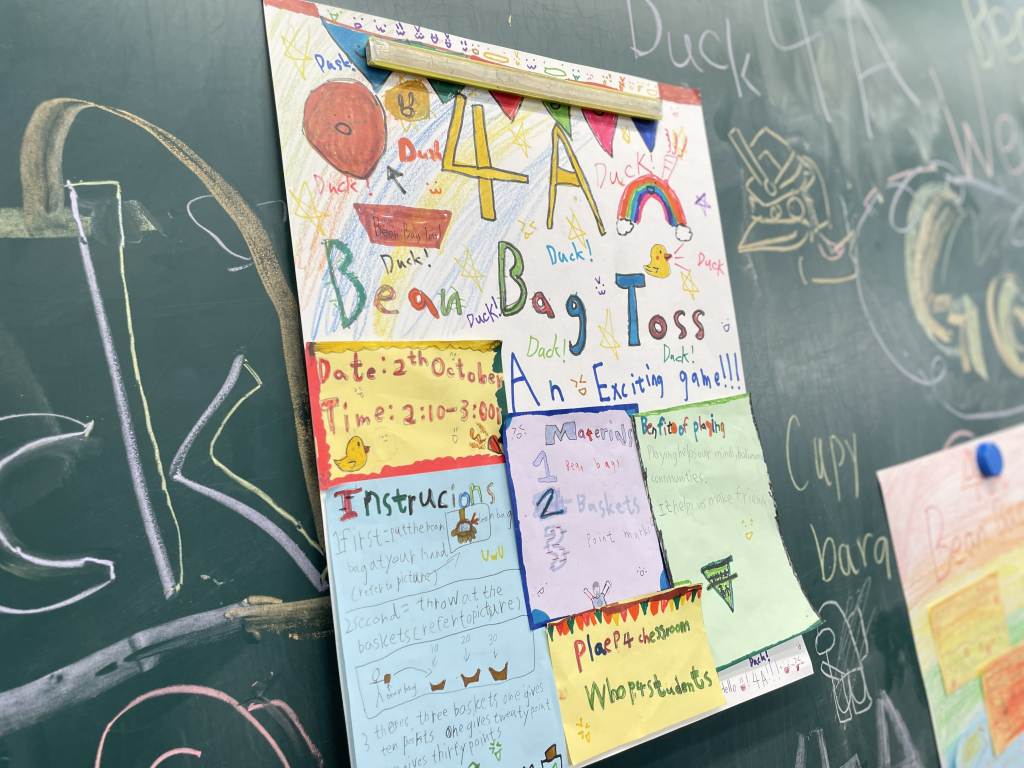 Duck 4A
Dusk!
4A
Dusk
Duck!
Duck!
Bean Bag Toss
Duck!
Duck!
Duck
Bean Bag Toss
Duck!
Duck!
Duck!
An Exciting game!!!
Date: 2th October
Time: 2:10-3:00
Materials
1 Bean bags
2 Baskets
3 Point mark
Benfits of playing
Playing helps our mind,
communities.
It helps us make friends
Instrucions
1 First = put the bean
bag at your hand
(refer to picture)
UwU
2 second = throw at the
baskets (refer to picture)
10 20 30
3 theres three baskets one gives
ten points one gives twenty point
gives thirty points
Plae P4 chessroom
Who P4 students
Duck!
Hello 4A!!
Capy
bara